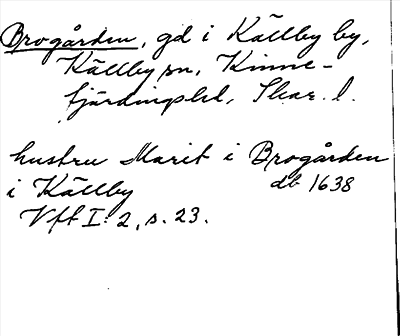 Brogården, gd i Källby by,
Källby sn, Kinne-
fjärdings hd, Skar. l.
hustru Marit i Brogården
i Källby db 1638
Vft I: 2, s. 23.